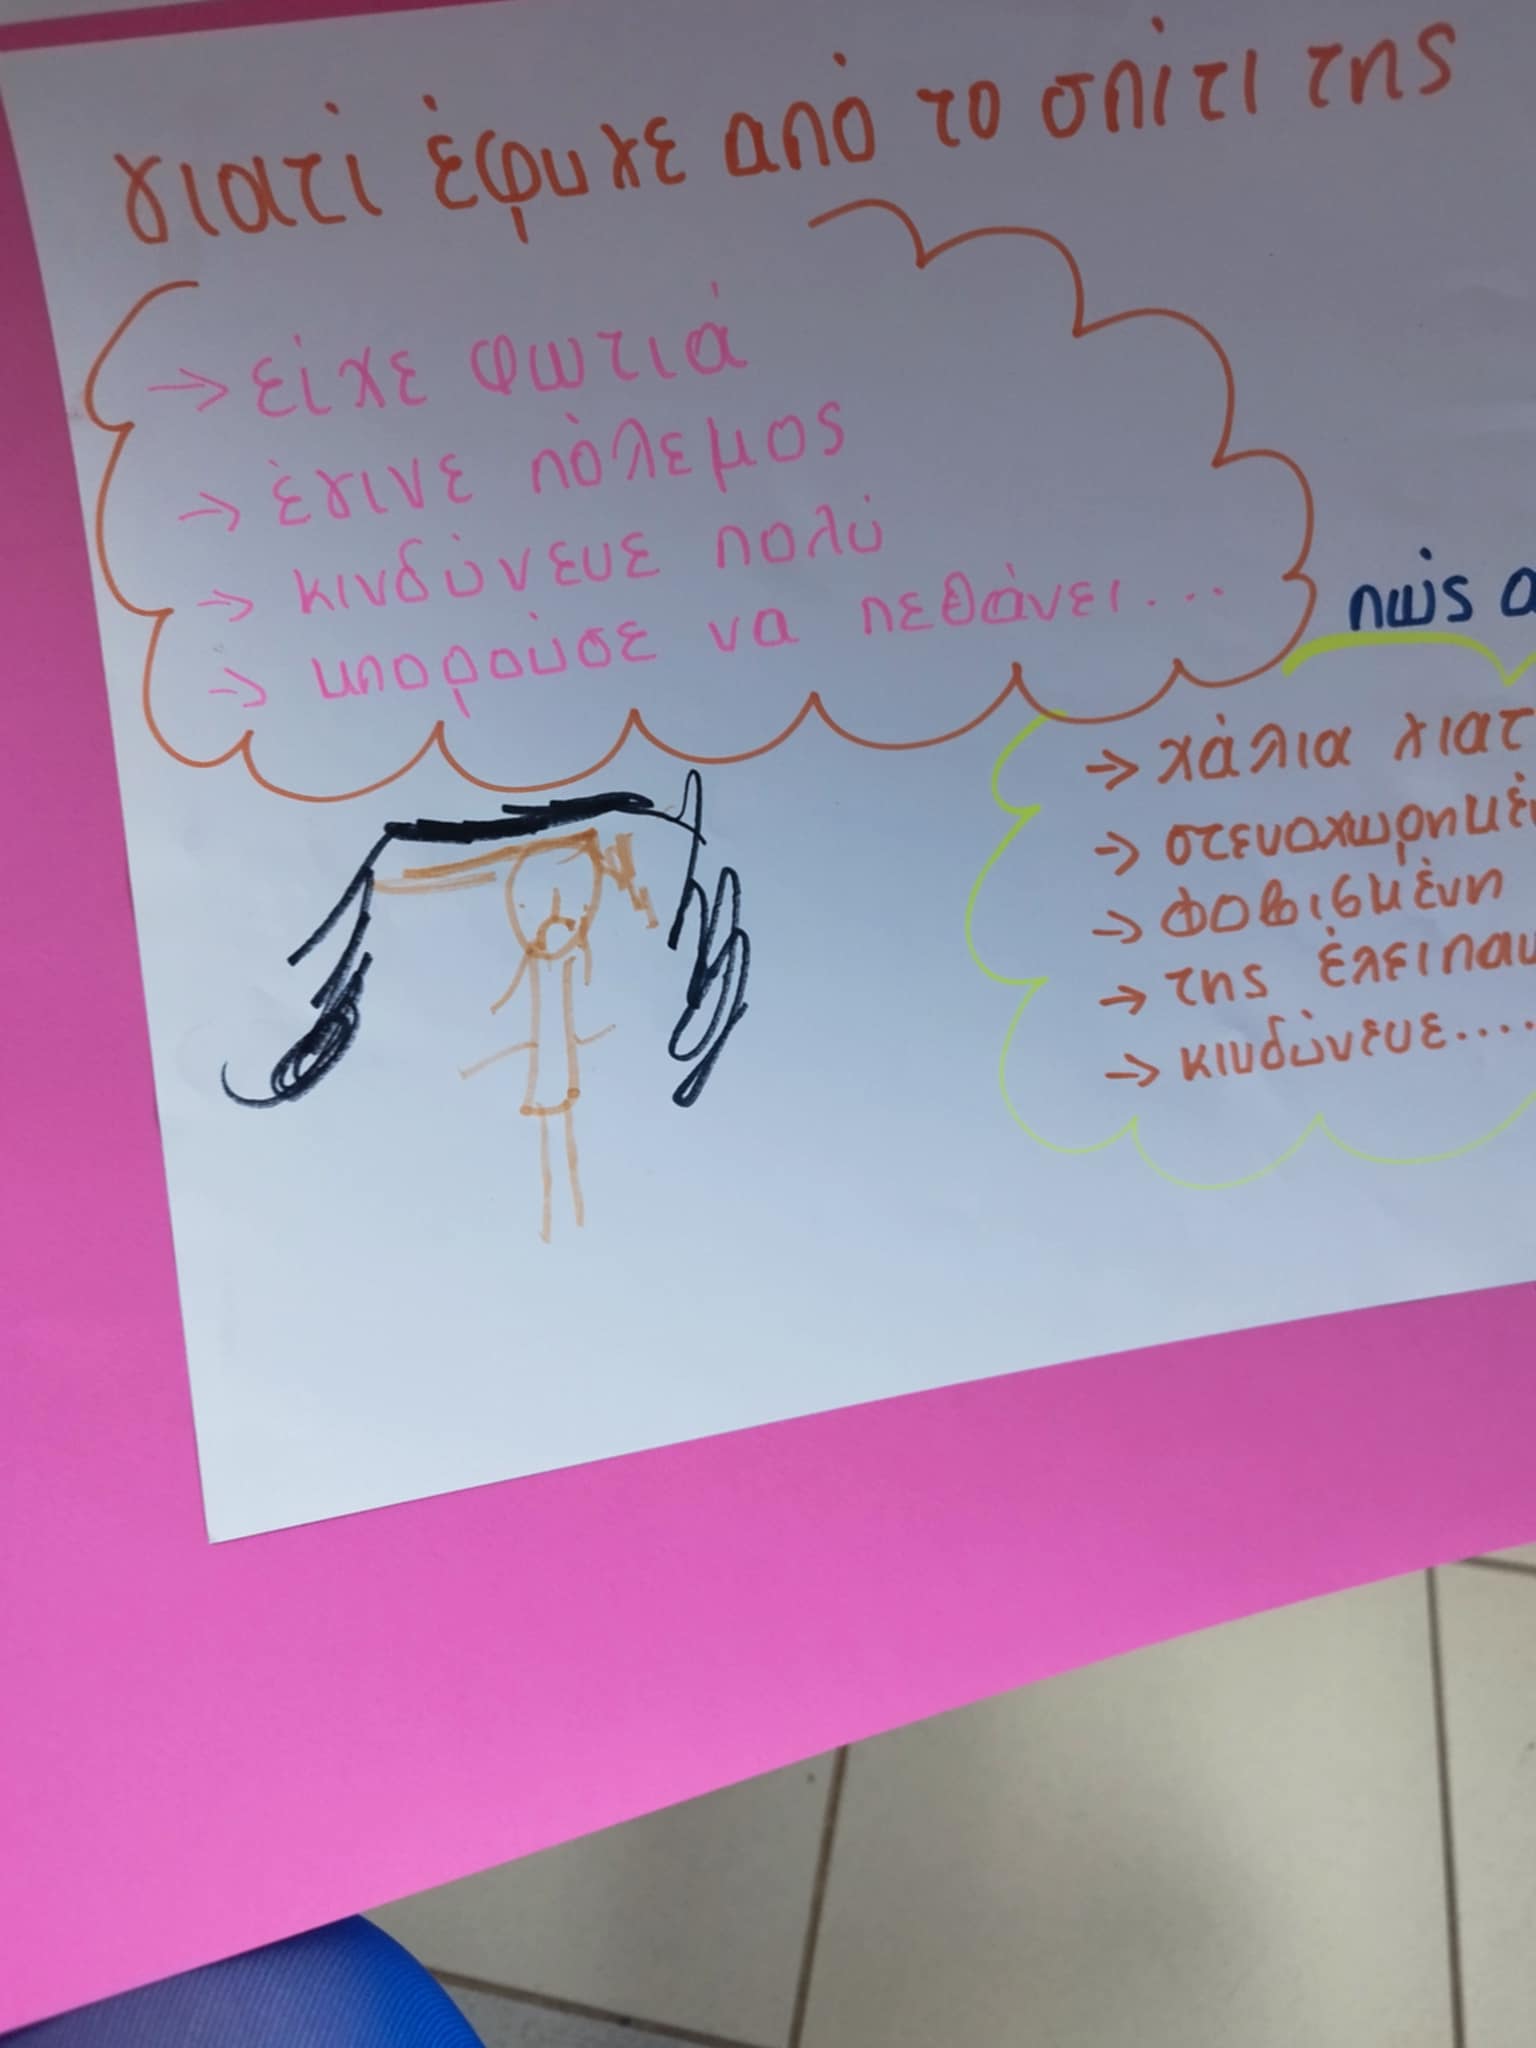 γιατί έφυγε από το σπίτι της
→ είχε φωτιά
→ έγινε πόλεμος
→ κινδύνευε πολύ
→ μπορούσε να πεθάνει...
πώς
→ χάλια γιατ
→ στεναχωρημέν
→ φοβισμένη
→ της έλειπαν
→ κινδύνευε....